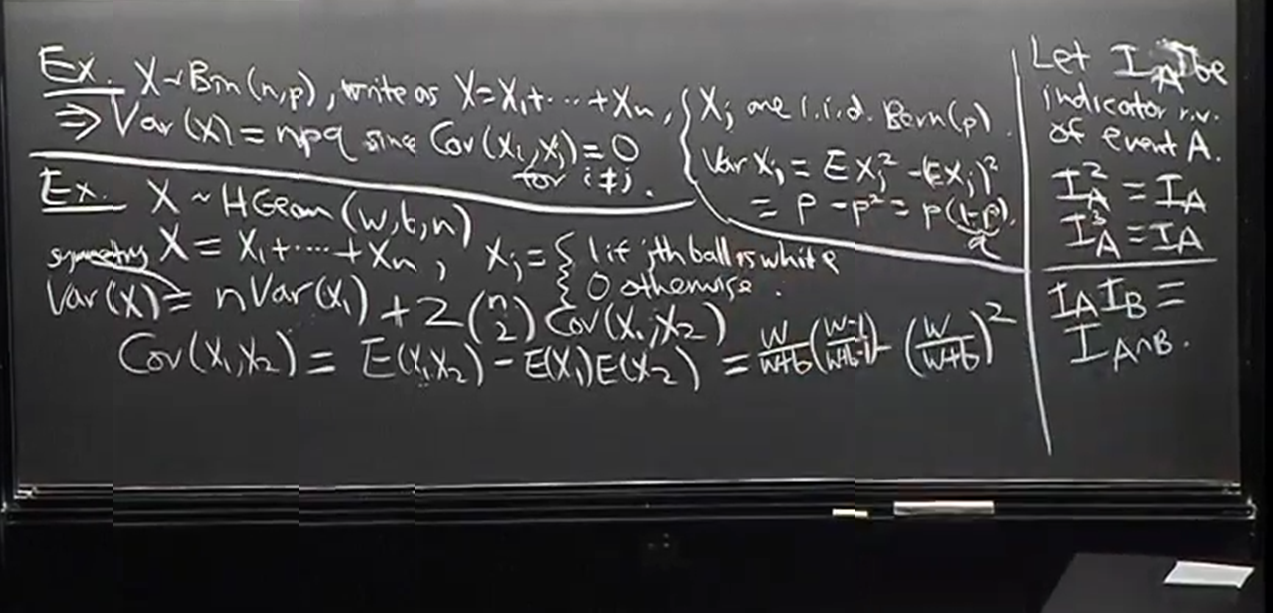 Ex. X ~ Bin(n,p), write as X = X₁ + ⋯ + Xₙ,
⇒ Var(X) = npq since Cov(Xᵢ, Xⱼ) = 0
for i ≠ j.
Xⱼ are i.i.d. Bern(p).
Var Xⱼ = EXⱼ² - (EXⱼ)²
= p - p² = p(1-p).
q
Ex. X ~ HGeom(w,b,n)
symmetry X = X₁ + ⋯ + Xₙ, Xⱼ = { 1 if jth ball is white
0 otherwise.
Var(X) = n Var(X₁) + 2 (n 2) Cov(X₁, X₂)
Cov(X₁, X₂) = E(X₁X₂) - E(X₁)E(X₂) = w/(w+b) ((w-1)/(w+b-1)) - (w/(w+b))²
Let I_A be
indicator r.v.
of event A.
I_A² = I_A
I_A³ = I_A
I_A I_B =
I_{A∩B}.